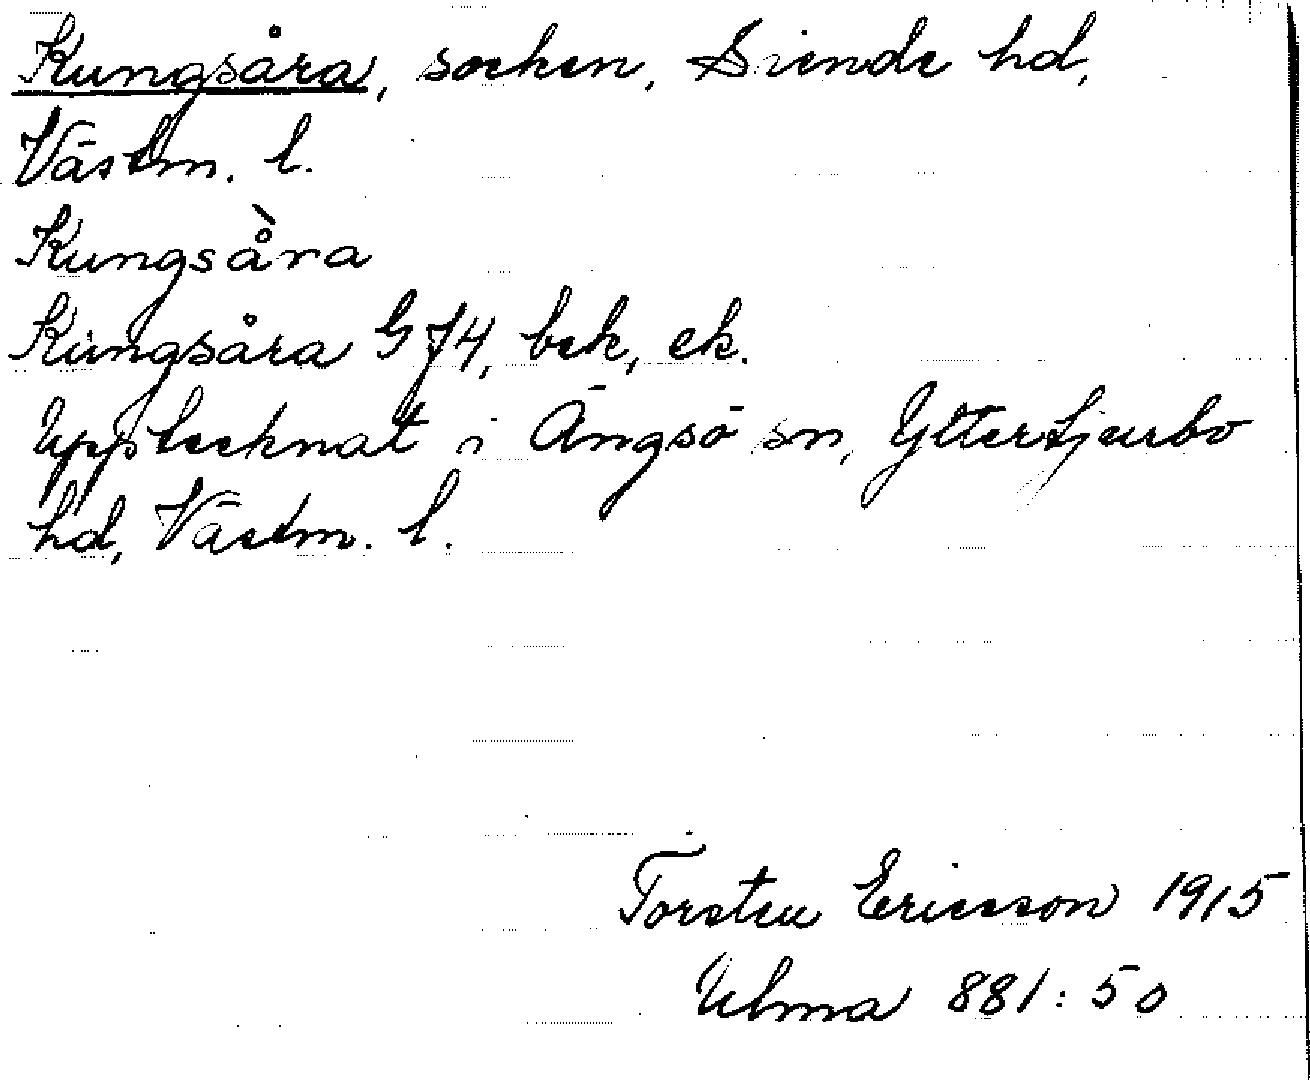 Kungsåra, socken, Siende hd,
Västm. l.
Kungså̀ra
Kungsåra GJ4, bek, ek.
Upptecknat i Ängsö sn, Yttertjurbo
hd, Västm. l.
Torsten Ericsson 1915
Ulma 881:50